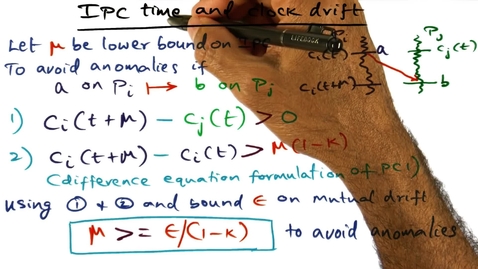 IPC time and clock drift
Let μ be lower bound on IPC
To avoid anomalies if
a on Pi ↦ b on Pj
1) Ci(t+μ) - Cj(t) > 0
2) Ci(t+μ) - Ci(t) > μ(1-K)
(difference equation formulation of PC1)
using ① & ② and bound ϵ on mutual drift
μ >= ϵ/(1-K) to avoid anomalies
Pj
Ci(t) a Cj(t)
Ci(t+μ) b